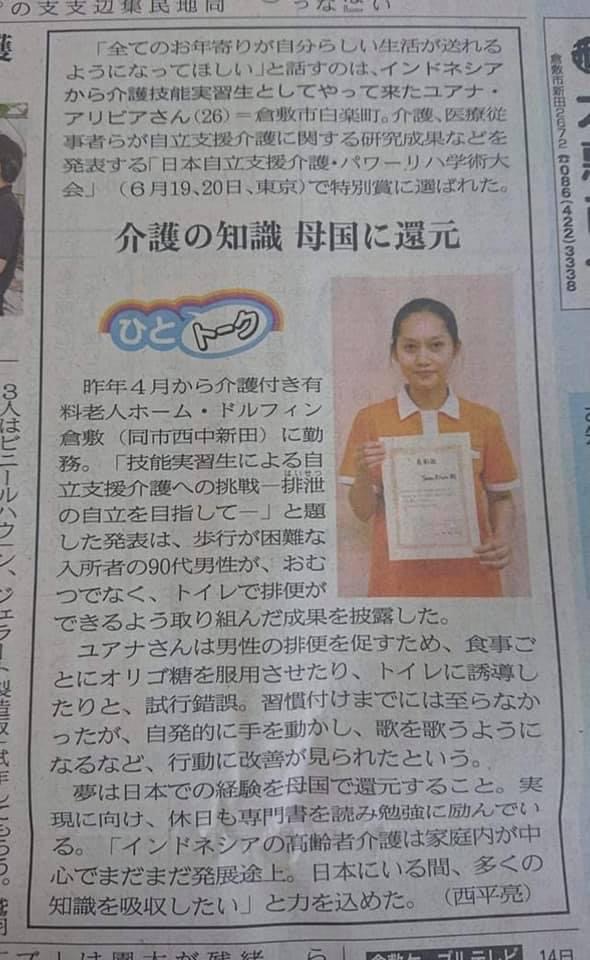 の支支辺集民地同
「全てのお年寄りが自分らしい生活が送れる
ようになってほしい」と話すのは、インドネシア
から介護技能実習生としてやって来たユアナ・
アリビアさん(26)＝倉敷市白楽町。介護、医療従
事者らが自立支援介護に関する研究成果などを
発表する「日本自立支援介護・パワーリハ学術大
会」（6月19、20日、東京）で特別賞に選ばれた。
介護の知識 母国に還元
ひと
トーク
昨年4月から介護付き有
料老人ホーム・ドルフィン
倉敷（同市西中新田）に勤
務。「技能実習生による自
立支援介護への挑戦―排泄
はいせつ
の自立を目指して―」と題
した発表は、歩行が困難な
入所者の90代男性が、おむ
つでなく、トイレで排便が
できるよう取り組んだ成果を披露した。
ユアナさんは男性の排便を促すため、食事ご
とにオリゴ糖を服用させたり、トイレに誘導し
たりと、試行錯誤。習慣付けまでには至らなか
ったが、自発的に手を動かし、歌を歌うように
なるなど、行動に改善が見られたという。
夢は日本での経験を母国で還元すること。実
現に向け、休日も専門書を読み勉強に励んでい
る。「インドネシアの高齢者介護は家庭内が中
心でまだまだ発展途上。日本にいる間、多くの
知識を吸収したい」と力を込めた。（西平亮）
倉敷市新田2672 ☎086(422)3338
3人はビニールハウ
ジェラート製造
14日